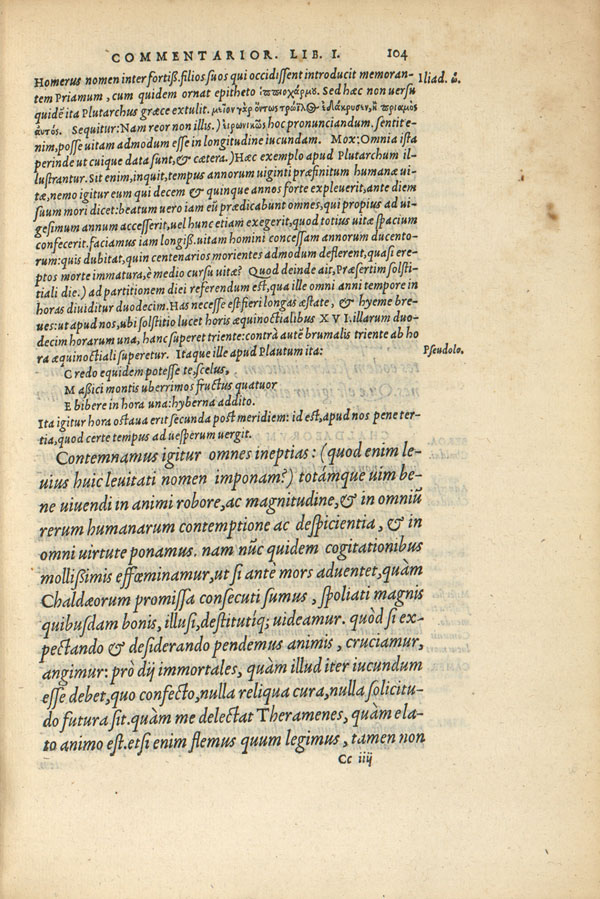 COMMENTARIOR. LIB. I. 104
Homerus nomen inter fortiß. filios suos qui occidissent introducit memoran- Iliad. ώ.
tem Priamum, cum quidem ornat epitheto ἱπποχάρμου. Sed hæc non uersu
quidẽ ita Plutarchus græce extulit. μεῖον γὰρ ὄντως τρωΐλΘ ἐδάκρυσεν, ἢ πρίαμος
αὐτός. Sequitur: Nam reor non illis.) εἰρωνικῶς hoc pronunciandum. sentit e-
nim, posse uitam admodum esse in longitudine iucundam. Mox: Omnia ista
perinde ut cuique data sunt, & cætera.) Hæc exemplo apud Plutarchum il-
lustrantur. Sit enim, inquit, tempus annorum uiginti præfinitum humanæ ui-
tæ, nemo igitur eum qui decem & quinque annos forte expleuerit, ante diem
suum mori dicet: beatum uero iam eũ prædicabunt omnes, qui propius ad ui-
gesimum annum accesserit, uel hunc etiam exegerit, quod totius uitæ spacium
confecerit. faciamus iam longiß. uitam homini concessam annorum ducento-
rum: quis dubitat, quin centenarios morientes admodum deflerent, quasi ere-
ptos morte immatura, è medio cursu uitæ? Quod deinde ait, Præsertim solsti-
tiali die.) ad partitionem diei referendum est, qua ille omni anni tempore in
horas diuiditur duodecim. Has necesse est fieri longas æstate, & hyeme bre-
ues: ut apud nos, ubi solstitio lucet horis æquinoctialibus XVI. illarum duo-
decim horarum una, hanc superet triente: contrà autẽ brumalis triente ab ho
ra æquinoctiali superetur. Itaque ille apud Plautum ita: Pseudolo.
Credo equidem potesse te, scelus,
Maßici montis uberrimos fructus quatuor
Ebibere in hora una: hyberna addito.
Ita igitur hora octaua erit secunda post meridiem: id est, apud nos pene ter-
tia, quod certe tempus ad uesperum uergit.
Contemnamus igitur omnes ineptias: (quod enim le-
uius huic leuitati nomen imponam?) totámque uim be-
ne uiuendi in animi robore, ac magnitudine, & in omniũ
rerum humanarum contemptione ac despicientia, & in
omni uirtute ponamus. nam nũc quidem cogitationibus
mollißimis effœminamur, ut si antè mors aduentet, quàm
Chaldæorum promissa consecuti sumus, spoliati magnis
quibusdam bonis, illusi, destitutíq; uideamur. quòd si ex-
pectando & desiderando pendemus animis, cruciamur,
angimur: prò dij immortales, quàm illud iter iucundum
esse debet, quo confecto, nulla reliqua cura, nulla solicitu-
do futura sit. quàm me delectat Theramenes, quàm ela-
to animo est. etsi enim flemus quum legimus, tamen non
Cc iiij